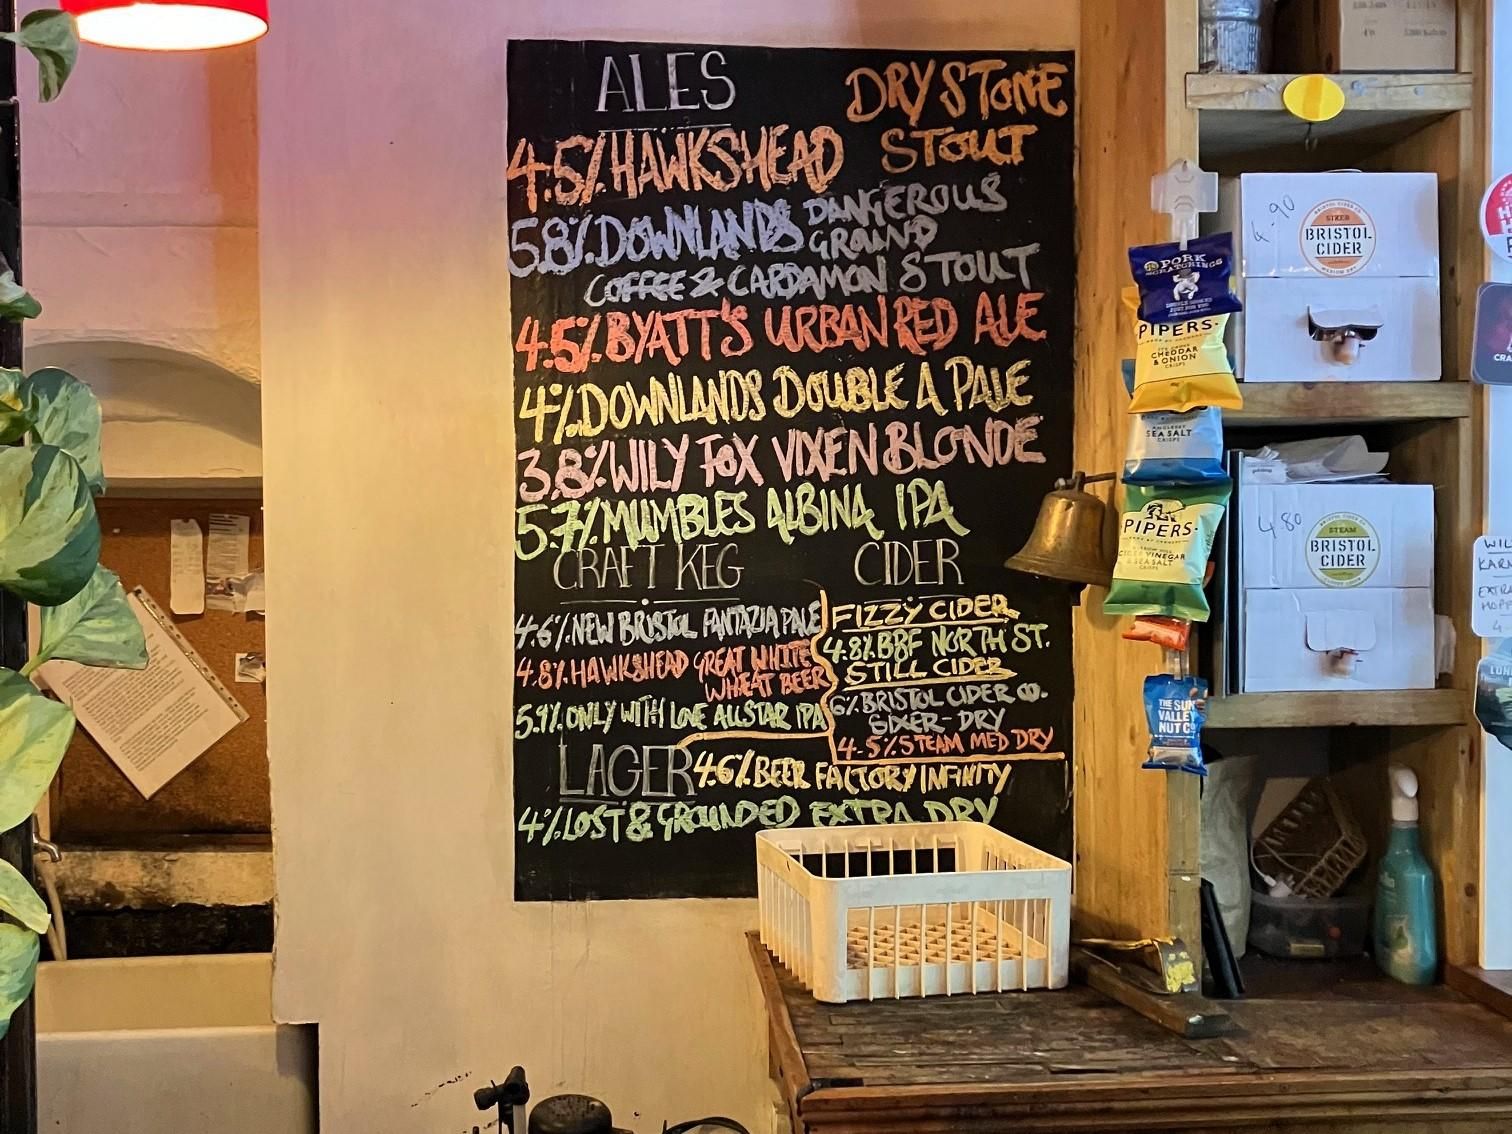 ALES
DRY STONE
4.5% HAWKSHEAD STOUT
5.8% DOWNLANDS DANGEROUS
GROUND
COFFEE & CARDAMON STOUT
4.5% BYATT'S URBAN RED ALE
4% DOWNLANDS DOUBLE A PALE
3.8% WILY FOX VIXEN BLONDE
5.7% MUMBLES ALBINA IPA
CRAFT KEG
4.6% NEW BRISTOL FANTAZIA PALE
4.8% HAWKSHEAD GREAT WHITE
WHEAT BEER
5.9% ONLY WITH LOVE ALLSTAR IPA
CIDER
FIZZY CIDER
4.8% BBF NORTH ST.
STILL CIDER
6% BRISTOL CIDER CO.
SIXER-DRY
4-5% STEAM MED DRY
LAGER
4.6% BEER FACTORY INFINITY
4% LOST & GROUNDED EXTRA DRY
PORK
SCRATCHINGS
PIPERS
CHEDDAR
& ONION
CRISPS
ANGLESEY
SEA SALT
CRISPS
PIPERS
CIDER VINEGAR
& SEA SALT
THE SUN
VALLEY
NUT CO
4.90
BRISTOL CIDER CO.
SIXER
BRISTOL
CIDER
MEDIUM DRY
4.80
STEAM
BRISTOL
CIDER
CRA
WIL
KARM
EXTRA
HOPP